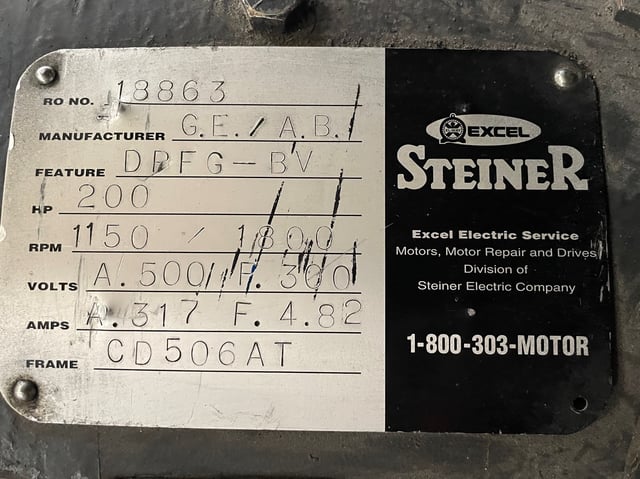 RO NO. 18863
MANUFACTURER G.E./A.B.
FEATURE DPFG-BV
HP 200
RPM 1150 / 1800
VOLTS A.500/F.300
AMPS A.317 F.4.82
FRAME CD506AT
EXCEL
STEINER
Excel Electric Service
Motors, Motor Repair and Drives
Division of
Steiner Electric Company
1-800-303-MOTOR